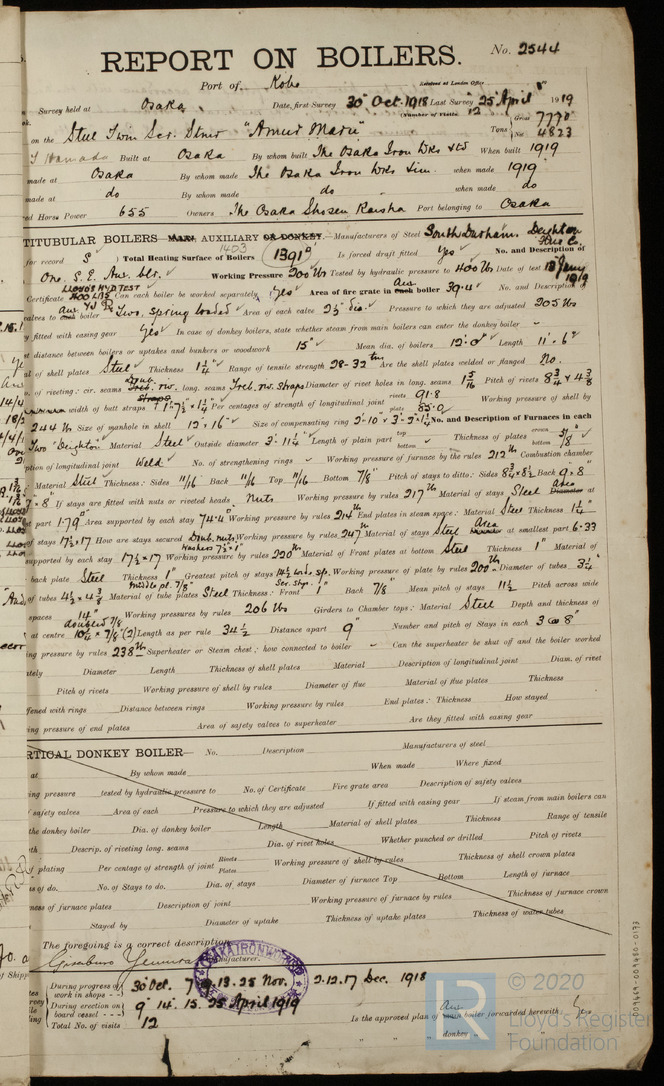 REPORT ON BOILERS.
No. 2544
Received at London Office
Port of Kobe
Survey held at Osaka Date, first Survey 30 Oct. 1918 Last Survey 25 April 1919
(Number of Visits 12
on the Steel Twin Scr. Stmr "Amur Maru" Tons Gross 7770 Net 4823
Built at Osaka By whom built The Osaka Iron Wks Ltd When built 1919
made at Osaka By whom made The Osaka Iron Wks Lim. when made 1919
made at do By whom made do when made do
ed Horse Power 655 Owners The Osaka Shosen Kaisha Port belonging to Osaka
TITUBULAR BOILERS MAIN, AUXILIARY OR DONKEY. Manufacturers of Steel South Durham, Deighton
for record S Total Heating Surface of Boilers 1403 1391 Is forced draft fitted Yes No. and Description of
One S.E. Aux. blr. Working Pressure 200 lbs Tested by hydraulic pressure to 400 lbs Date of test
LLOYD'S HYD TEST 400 LBS
Certificate Can each boiler be worked separately Yes Area of fire grate in each Aux boiler 39.4 No. and Description of
valves to each Aux boiler Two, spring loaded Area of each valve 2½ dia. Pressure to which they are adjusted 205 lbs
y fitted with easing gear Yes In case of donkey boilers, state whether steam from main boilers can enter the donkey boiler
st distance between boilers or uptakes and bunkers or woodwork 15" Mean dia. of boilers 12'-0" Length 11'-6"
al of shell plates Steel Thickness 1¼" Range of tensile strength 28-32 tns Are the shell plates welded or flanged No.
p. of riveting: cir. seams Doub. riv. long. seams Treb. riv. Straps Diameter of rivet holes in long. seams 1 5/16 Pitch of rivets 8¾ & 4⅜
width of butt straps Per centages of strength of longitudinal joint rivets 91.8 plate 85.0 Working pressure of shell by
244 lbs Size of manhole in shell 12" x 16" Size of compensating ring No. and Description of Furnaces in each
Two "Deighton" Material Steel Outside diameter 3'-11¼" Length of plain part top bottom Thickness of plates crown bottom
ption of longitudinal joint Weld No. of strengthening rings Working pressure of furnace by the rules 212 lbs Combustion chamber
Material Steel Thickness: Sides 11/16 Back 11/16 Top 11/16 Bottom 7/8" Pitch of stays to ditto: Sides 8¾ x 8½ Back 9 x 8
If stays are fitted with nuts or riveted heads Nuts Working pressure by rules 217 lbs Material of stays Steel Area Diameter at
st part 1.79 Area supported by each stay 74.4 Working pressure by rules 214 lbs End plates in steam space: Material Steel Thickness 1¼"
of stays 17½ x 17 How are stays secured Doub. nuts, Working pressure by rules 247 lbs Material of stays Steel Area at smallest part 6.33
supported by each stay 17½ x 17 Working pressure by rules 220 lbs Material of Front plates at bottom Steel Thickness 1" Material of
back plate Steel Thickness 1" Greatest pitch of stays Working pressure of plate by rules 200 Diameter of tubes 3¼"
of tubes 4½ x 4⅜ Material of tube plates Steel Thickness: Front 1" Back 7/8" Mean pitch of stays 11½ Pitch across wide
spaces 14" Working pressures by rules 206 lbs Girders to Chamber tops: Material Steel Depth and thickness of
at centre 10¼ x 7/8" (2) Length as per rule 34½ Distance apart 9" Number and pitch of Stays in each 3 @ 8"
ng pressure by rules 238 lbs Superheater or Steam chest; how connected to boiler - Can the superheater be shut off and the boiler worked
ately Diameter Length Thickness of shell plates Material Description of longitudinal joint Diam. of rivet
Pitch of rivets Working pressure of shell by rules Diameter of flue Material of flue plates Thickness
ffened with rings Distance between rings Working pressure by rules End plates: Thickness How stayed
ing pressure of end plates Area of safety valves to superheater Are they fitted with easing gear
RTICAL DONKEY BOILER— No. Description Manufacturers of steel
at By whom made When made Where fixed
ing pressure tested by hydraulic pressure to No. of Certificate Fire grate area Description of safety valves
safety valves Area of each Pressure to which they are adjusted If fitted with easing gear If steam from main boilers can
the donkey boiler Dia. of donkey boiler Length Material of shell plates Thickness Range of tensile
th Descrip. of riveting long. seams Dia. of rivet holes Whether punched or drilled Pitch of rivets
plating Per centage of strength of joint Rivets Plates Working pressure of shell by rules Thickness of shell crown plates
s of do. No. of Stays to do. Dia. of stays Diameter of furnace Top Bottom Length of furnace
ness of furnace plates Description of joint Working pressure of furnace by rules Thickness of furnace crown
Stayed by Diameter of uptake Thickness of uptake plates Thickness of water tubes
The foregoing is a correct description,
Manufacturer.
OSAKA IRON WORKS
During progress of work in shops - - 30 Oct. 13. 25 Nov. 2.12.17 Dec. 1918
During erection on board vessel - - - 9. 14. 15. 25. April 1919
Total No. of visits 12
Is the approved plan of main Aux boiler forwarded herewith Yes
" " " donkey " " "
© 2020
LR
Lloyd's Register
Foundation
009464-009480-0173